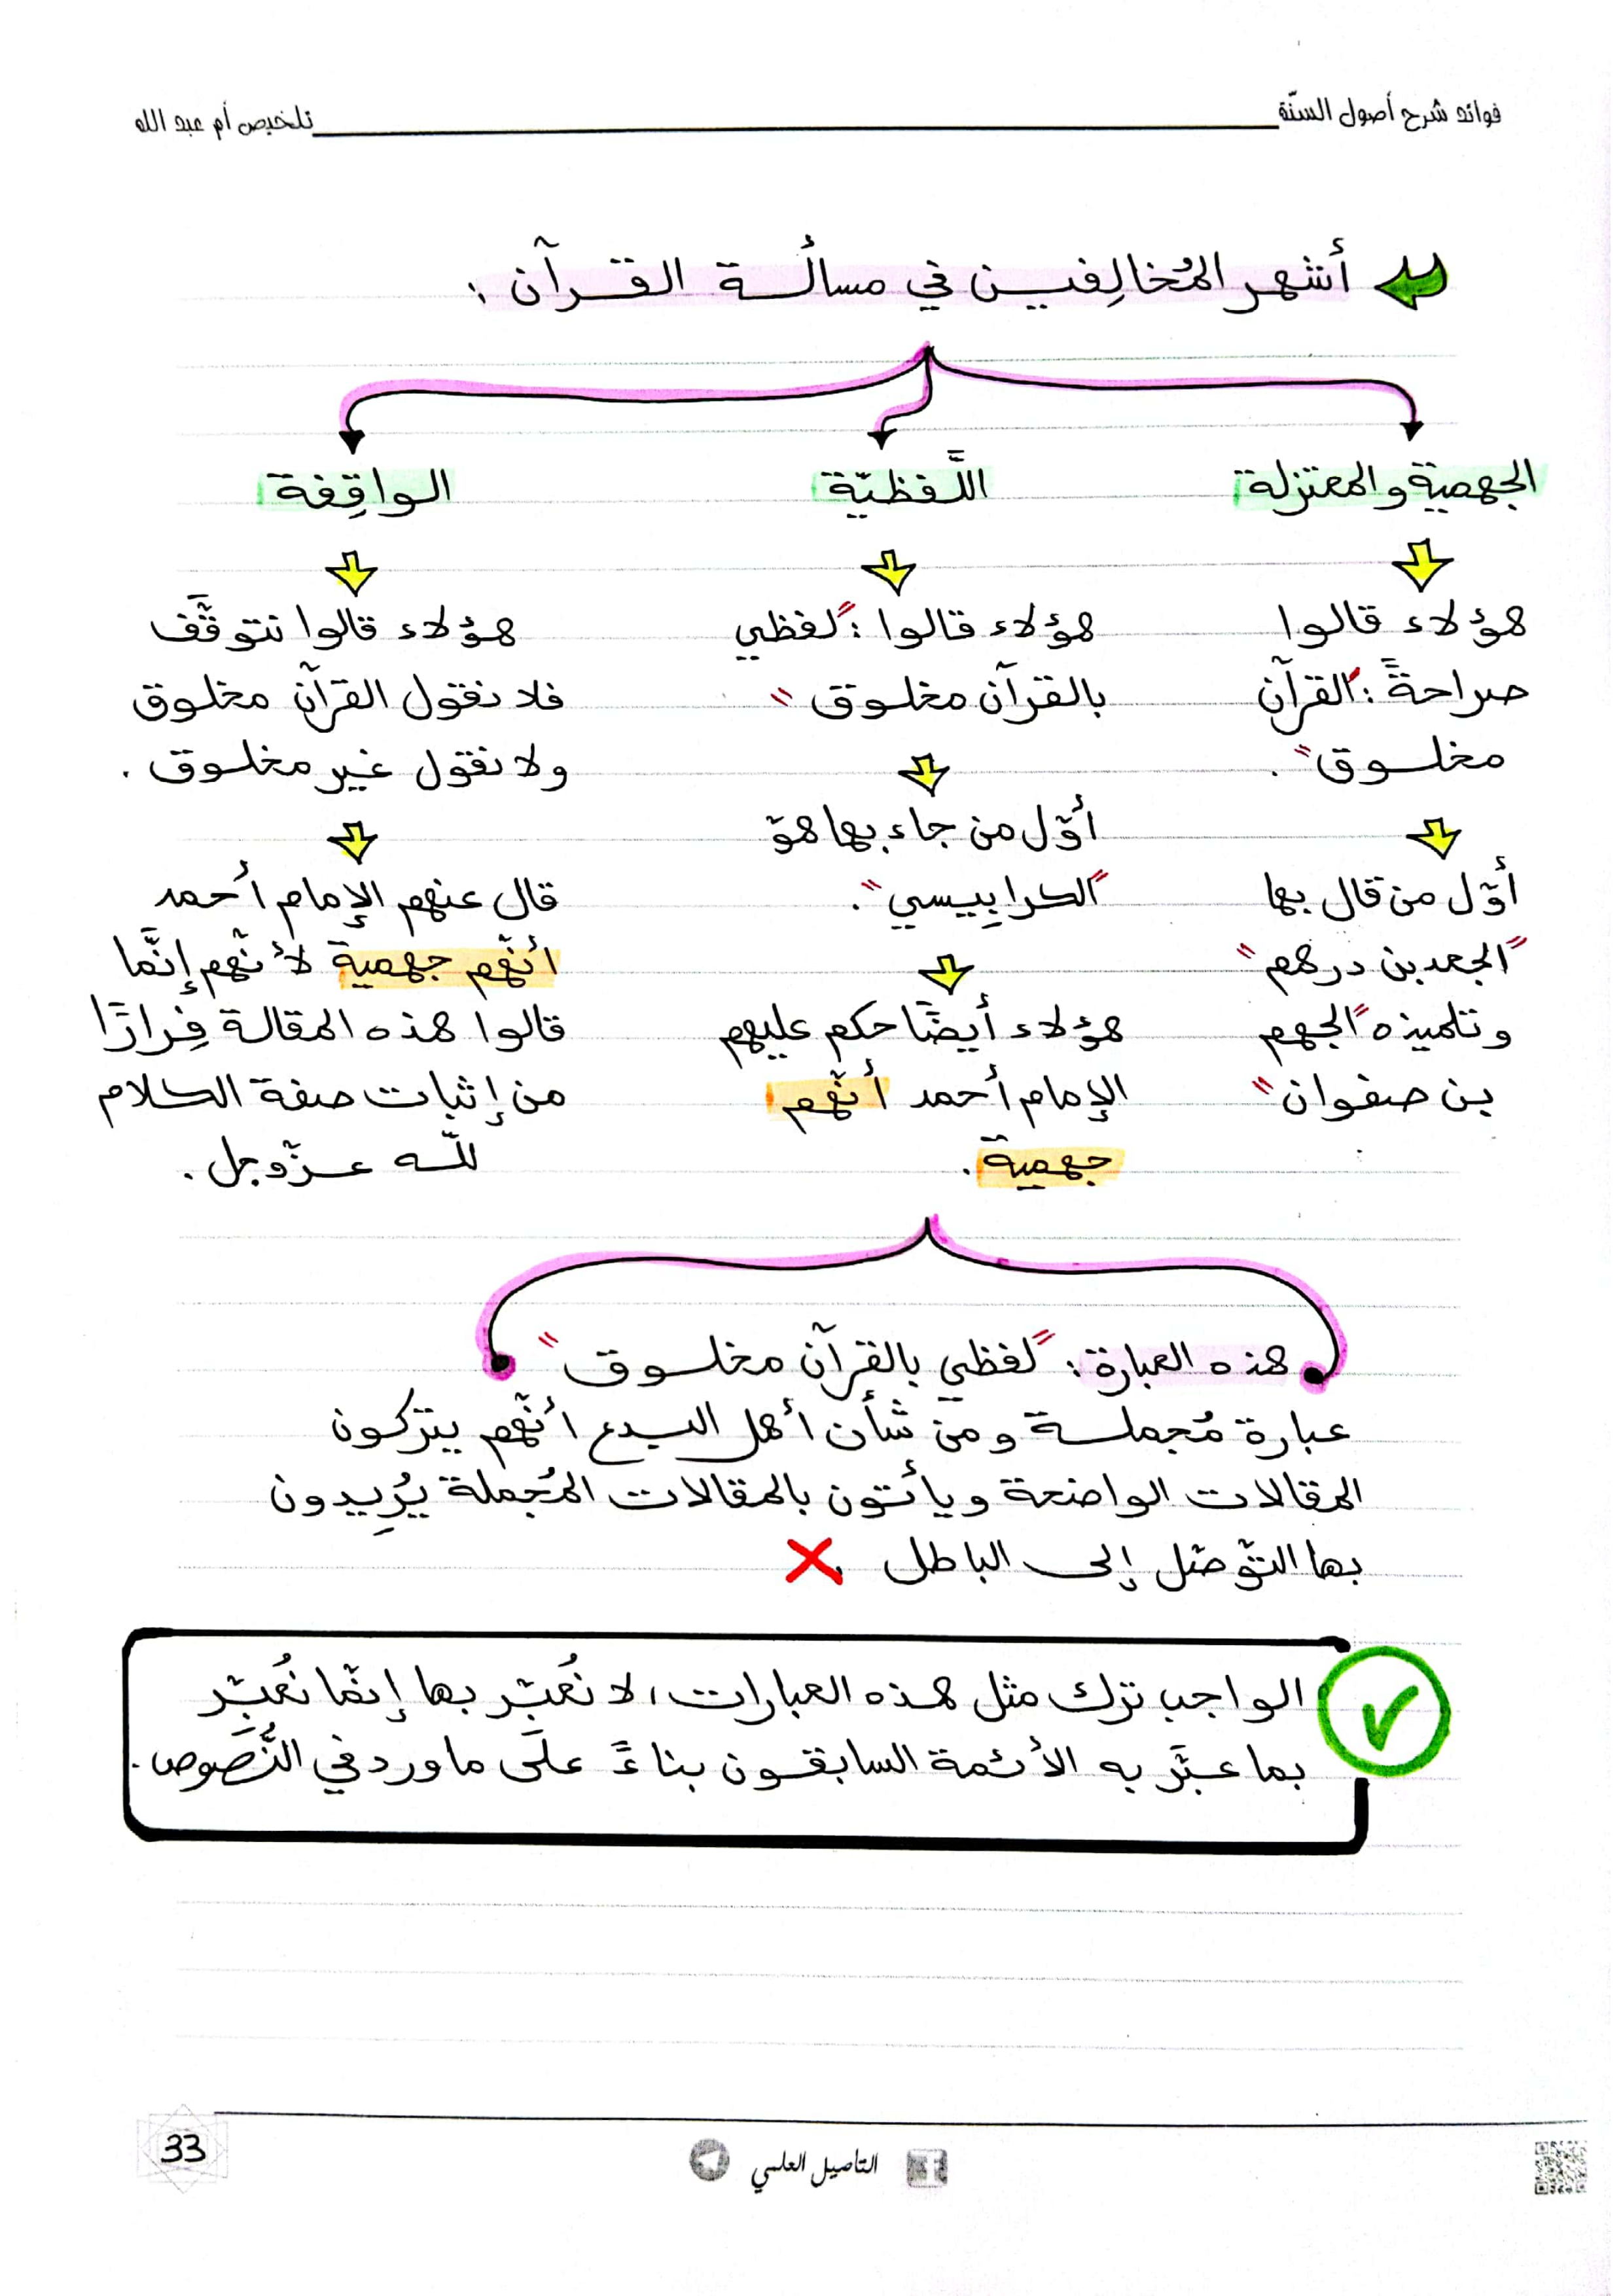 فوائد شرح أصول السنّة
تلخيص أم عبد الله
أشهر المُخالِفين في مسألة القرآن :
الجهمية والمعتزلة
هؤلاء قالوا
صراحةً : "القرآن
مخلوق" .
أوّل من قال بها
"الجعد بن درهم"
وتلميذه "الجهم
بن صفوان"
اللَّفظيّة
هؤلاء قالوا : "لفظي
بالقرآن مخلوق"
أوّل من جاء بها هو
"الكرابيسي" .
هؤلاء أيضًا حكم عليهم
الإمام أحمد أنّهم
جهمية .
الواقِفة
هؤلاء قالوا نتوقَّف
فلا نقول القرآن مخلوق
ولا نقول غير مخلوق .
قال عنهم الإمام أحمد
أنّهم جهمية لأنّهم إنَّما
قالوا هذه المقالة فِرارًا
من إثبات صفة الكلام
للّه عزّ وجل .
هذه العبارة : "لفظي بالقرآن مخلوق"
عبارة مُجملة ومن شأن أهل البدع أنّهم يتركون
المقالات الواضحة ويأتون بالمقالات المُجملة يُرِيدون
بها التّوصّل إلى الباطل .
الواجب ترك مثل هذه العبارات، لا نُعبّر بها إنّما نُعبّر
بما عبَّر به الأئمة السابقون بناءً على ما ورد في النُّصوص .
التأصيل العلمي
33